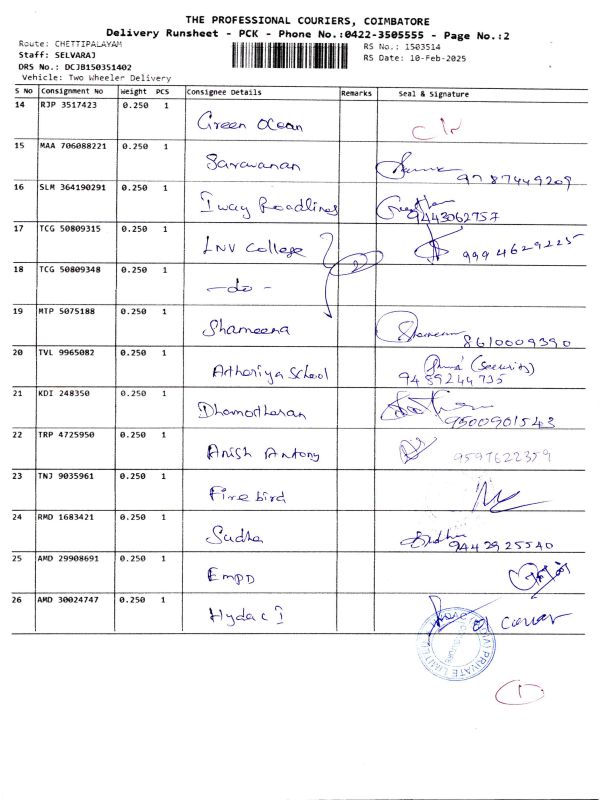 THE PROFESSIONAL COURIERS, COIMBATORE
Delivery Runsheet - PCK - Phone No.:0422-3505555 - Page No.:2
Route: CHETTIPALAYAM
RS No.: 1503514
Staff: SELVARAJ
RS Date: 10-Feb-2025
DRS No.: DCJB150351402
Vehicle: Two Wheeler Delivery
S No Consignment No Weight PCS Consignee Details Remarks Seal & Signature
14 RJP 3517423 0.250 1 Green Ocean
15 MAA 706088221 0.250 1 Saravanan 9787449209
16 SLM 364190291 0.250 1 Iway Roadlines 9443062757
17 TCG 50809315 0.250 1 LNV College 9994629225
18 TCG 50809348 0.250 1 - do -
19 MTP 5075188 0.250 1 Shameena 8610009390
20 TVL 9965082 0.250 1 Athariya School (Security) 9489244735
21 KDI 248350 0.250 1 Dhamodharan 9500901543
22 TRP 4725950 0.250 1 Anish Antony 9597622359
23 TNJ 9035961 0.250 1 Fire bird
24 RMD 1683421 0.250 1 Sudha Sudha 9442925540
25 AMD 29908691 0.250 1 EMPD
26 AMD 30024747 0.250 1 Hydac I
PRIVATE LIMITED
1